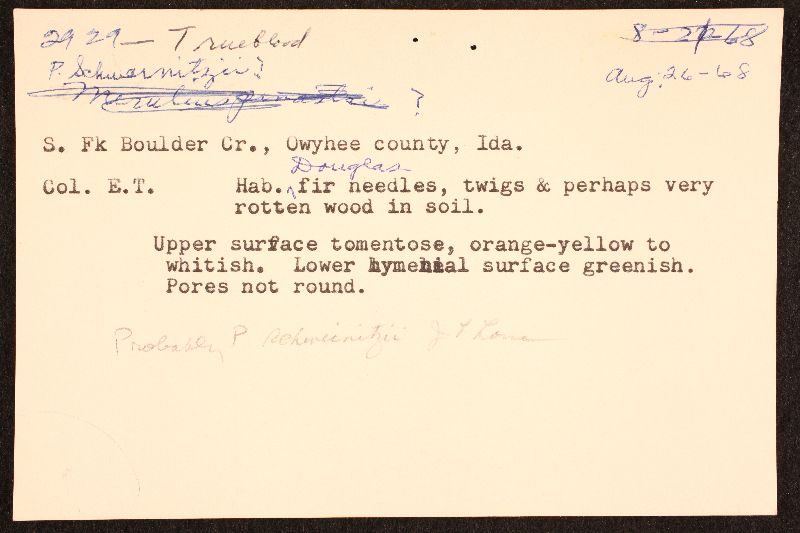 2929 — Trueblood
8-21-68
P. Schwarnitzii?
Aug. 26-68
Merulius ?
S. Fk Boulder Cr., Owyhee county, Ida.
Douglas
Col. E.T. Hab. fir needles, twigs & perhaps very
rotten wood in soil.
Upper surface tomentose, orange-yellow to
whitish. Lower hymenial surface greenish.
Pores not round.
Probably P schweinitzii J L Lowe